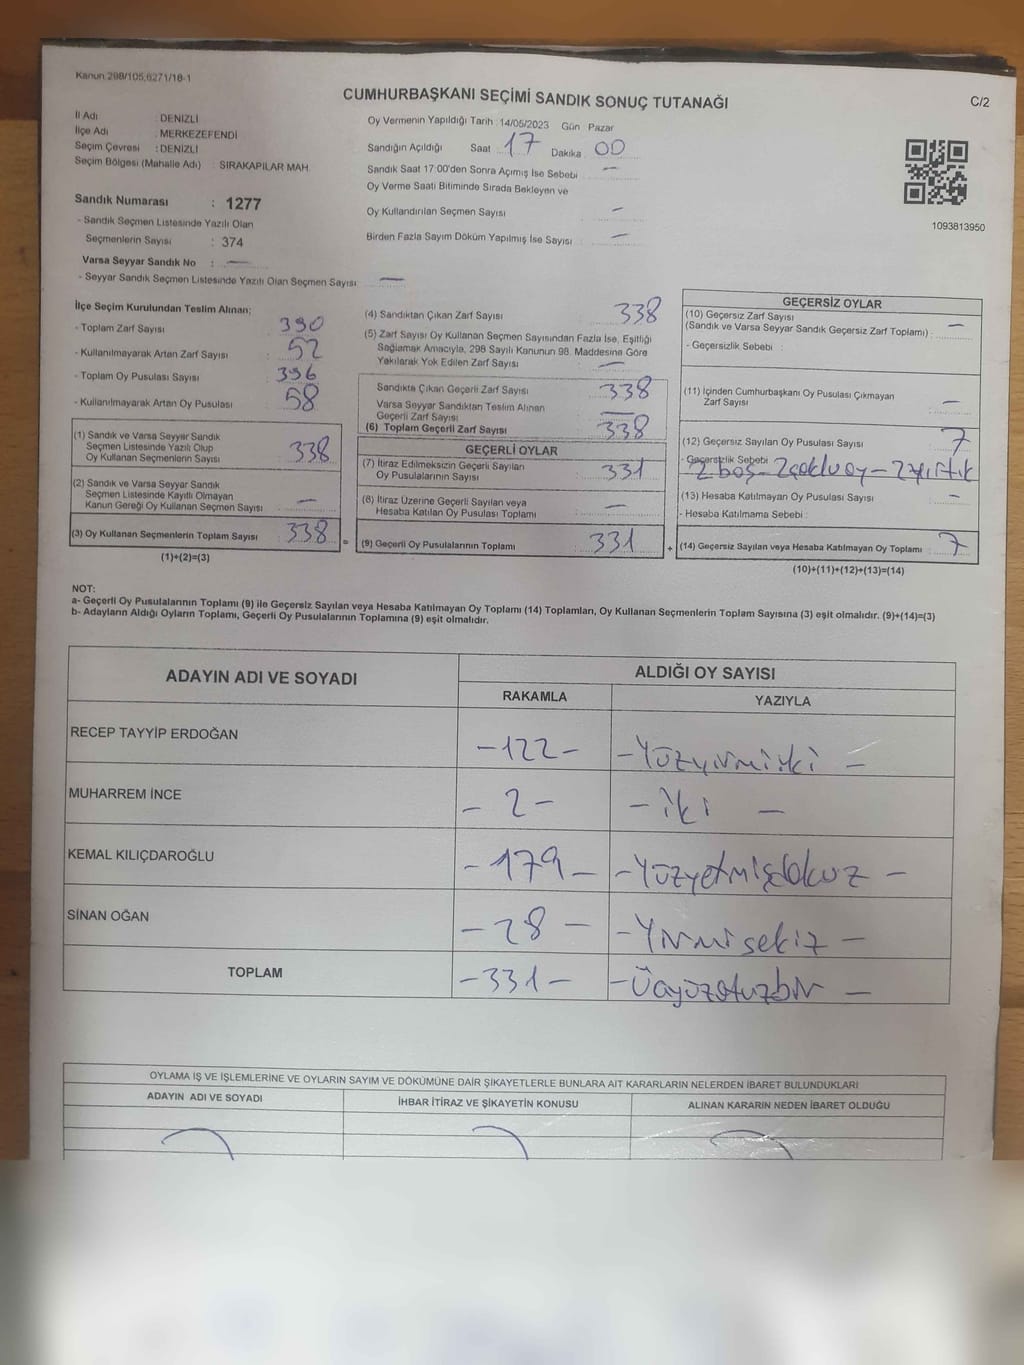 Kanun 298/105,6271/18-1
CUMHURBAŞKANI SEÇİMİ SANDIK SONUÇ TUTANAĞI
C/2
İl Adı : DENİZLİ
İlçe Adı : MERKEZEFENDİ
Seçim Çevresi : DENİZLİ
Seçim Bölgesi (Mahalle Adı) : SIRAKAPILAR MAH.
Sandık Numarası : 1277
- Sandık Seçmen Listesinde Yazılı Olan
Seçmenlerin Sayısı : 374
Varsa Seyyar Sandık No : —
- Seyyar Sandık Seçmen Listesinde Yazılı Olan Seçmen Sayısı —
Oy Vermenin Yapıldığı Tarih : 14/05/2023 Gün Pazar
Sandığın Açıldığı Saat 17 Dakika 00
Sandık Saat 17:00'den Sonra Açımış İse Sebebi —
Oy Verme Saati Bitiminde Sırada Bekleyen ve
Oy Kullandırılan Seçmen Sayısı —
Birden Fazla Sayım Döküm Yapılmış İse Sayısı —
1093813950
İlçe Seçim Kurulundan Teslim Alınan;
- Toplam Zarf Sayısı : 390
- Kullanılmayarak Artan Zarf Sayısı : 52
- Toplam Oy Pusulası Sayısı : 396
- Kullanılmayarak Artan Oy Pusulası : 58
(1) Sandık ve Varsa Seyyar Sandık
Seçmen Listesinde Yazılı Olup
Oy Kullanan Seçmenlerin Sayısı : 338
(2) Sandık ve Varsa Seyyar Sandık
Seçmen Listesinde Kayıtlı Olmayan
Kanun Gereği Oy Kullanan Seçmen Sayısı : —
(3) Oy Kullanan Seçmenlerin Toplam Sayısı : 338
(1)+(2)=(3)
=
(4) Sandıktan Çıkan Zarf Sayısı : 338
(5) Zarf Sayısı Oy Kullanan Seçmen Sayısından Fazla İse, Eşitliği
Sağlamak Amacıyla, 298 Sayılı Kanunun 98. Maddesine Göre
Yakılarak Yok Edilen Zarf Sayısı : —
Sandıkta Çıkan Geçerli Zarf Sayısı : 338
Varsa Seyyar Sandıktan Teslim Alınan
Geçerli Zarf Sayısı : —
(6) Toplam Geçerli Zarf Sayısı : 338
GEÇERLİ OYLAR
(7) İtiraz Edilmeksizin Geçerli Sayılan
Oy Pusulalarının Sayısı : 331
(8) İtiraz Üzerine Geçerli Sayılan veya
Hesaba Katılan Oy Pusulası Toplamı : —
(9) Geçerli Oy Pusulalarının Toplamı : 331
+
GEÇERSİZ OYLAR
(10) Geçersiz Zarf Sayısı
(Sandık ve Varsa Seyyar Sandık Geçersiz Zarf Toplamı) : —
- Geçersizlik Sebebi :
(11) İçinden Cumhurbaşkanı Oy Pusulası Çıkmayan
Zarf Sayısı : —
(12) Geçersiz Sayılan Oy Pusulası Sayısı : 7
- Geçersizlik Sebebi 2 boş - 2 çoklu oy - 2 yırtık
(13) Hesaba Katılmayan Oy Pusulası Sayısı : —
- Hesaba Katılmama Sebebi :
(14) Geçersiz Sayılan veya Hesaba Katılmayan Oy Toplamı : 7
(10)+(11)+(12)+(13)=(14)
NOT:
a- Geçerli Oy Pusulalarının Toplamı (9) ile Geçersiz Sayılan veya Hesaba Katılmayan Oy Toplamı (14) Toplamları, Oy Kullanan Seçmenlerin Toplam Sayısına (3) eşit olmalıdır. (9)+(14)=(3)
b- Adayların Aldığı Oyların Toplamı, Geçerli Oy Pusulalarının Toplamına (9) eşit olmalıdır.
ADAYIN ADI VE SOYADI
ALDIĞI OY SAYISI
RAKAMLA YAZIYLA
RECEP TAYYİP ERDOĞAN -122- -Yüzyirmiiki -
MUHARREM İNCE -2- -iki -
KEMAL KILIÇDAROĞLU -179- -Yüzyetmişdokuz -
SİNAN OĞAN -28- -Yirmisekiz -
TOPLAM -331- -Üçyüzotuzbir -
OYLAMA İŞ VE İŞLEMLERİNE VE OYLARIN SAYIM VE DÖKÜMÜNE DAİR ŞİKAYETLERLE BUNLARA AİT KARARLARIN NELERDEN İBARET BULUNDUKLARI
ADAYIN ADI VE SOYADI İHBAR İTİRAZ VE ŞİKAYETİN KONUSU ALINAN KARARIN NEDEN İBARET OLDUĞU